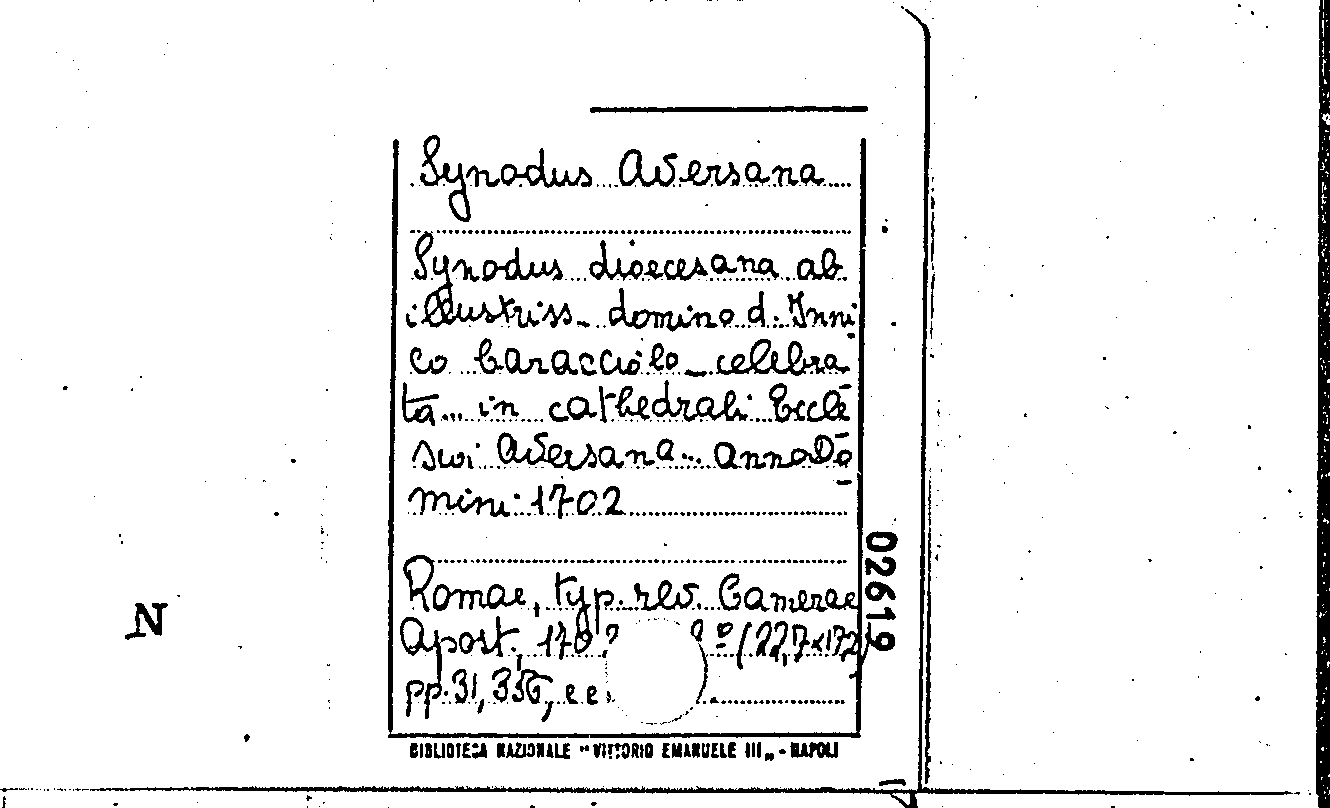 Synodus Aversana
Synodus dioecesana ab
illustriss. domino d. Inni
co Caracciolo celebra
ta... in cathedrali Eccle
sui Aversana... anno Do
mini 1702
Romae, typ. rev. Camerae
Apost., 170 8º (22,7x172)
pp. 31, 356,
02619
N
BIBLIOTECA NAZIONALE "VITTORIO EMANUELE III" - NAPOLI